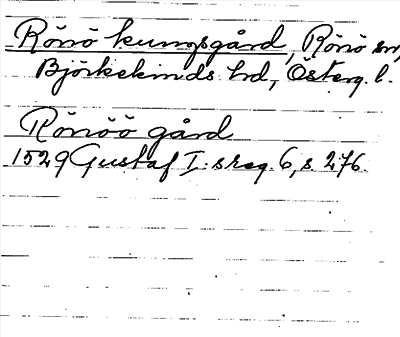 Rönö kungsgård, Rönö sn,
Björkekinds hd, Österg. l.
Rönöö gård
1529 Gustaf I:s reg. 6, s. 276.